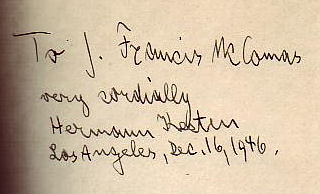 To J. Francis McComas
very cordially
Hermann Kesten
Los Angeles, Dec. 16, 1946.